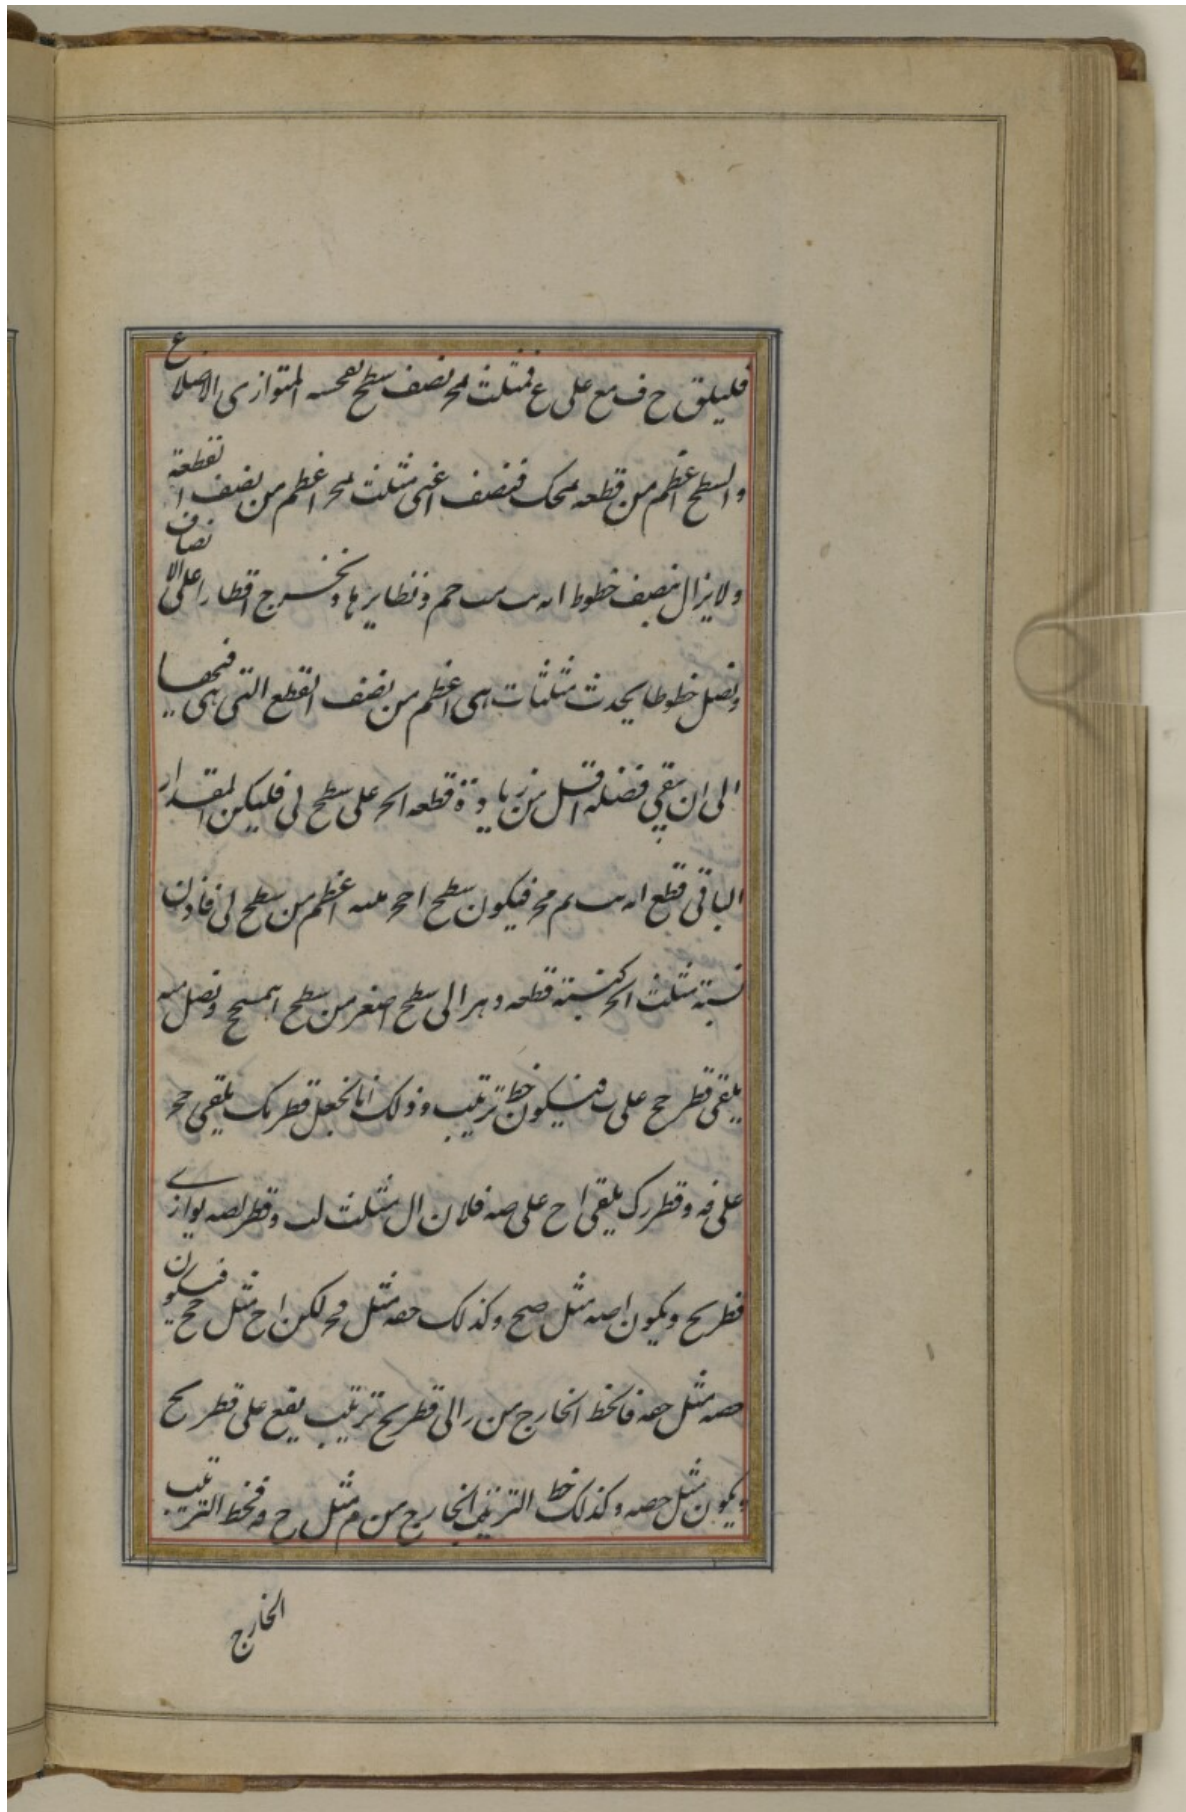 فليلق ح ف مع على ع فمثلث لمحر نصف سطح المتوازى الاضلاع
والسطح اعظم من قطعه لمحك فنصف اعنى مثلث لمحر اعظم من نصف القطعة
ولا يزال ينصف خطوط اه حم ونظايرها ونخرج اقطارا على الانصاف
ونصل خطوطا يحدث مثلثات هى اعظم من نصف القطع التى هى فيها
الى ان يبقى فضله اقل من زيادة قطعه ابحر على سطح لى فليكن المقدار
الباقى قطع اه م محر فيكون سطح اعظم من سطح لى فاذن
نسبة مثلث ابحر كنسبة قطعه دهر الى سطح اصغر من سطح ونصل مسه
يلقى قطر بح على ف فيكون خط ترتيب وذلك انا نجعل قطر مك يلقى حح
على فه وقطر رك يلقى اح على صه فلان ال مثل لب وقطر لصه يوازى
قطر بح ويكون اصه مثل صح وكذلك حفه مثل فحر لكن اح مثل حح فيكون
حصه مثل حفه فالخط الخارج من ر الى قطر بح ترتيب يقع على قطر بح
ويكون مثل حصه وكذلك خط الترتيب الخارج من م مثل ح فه فخط الترتيب
الخارج